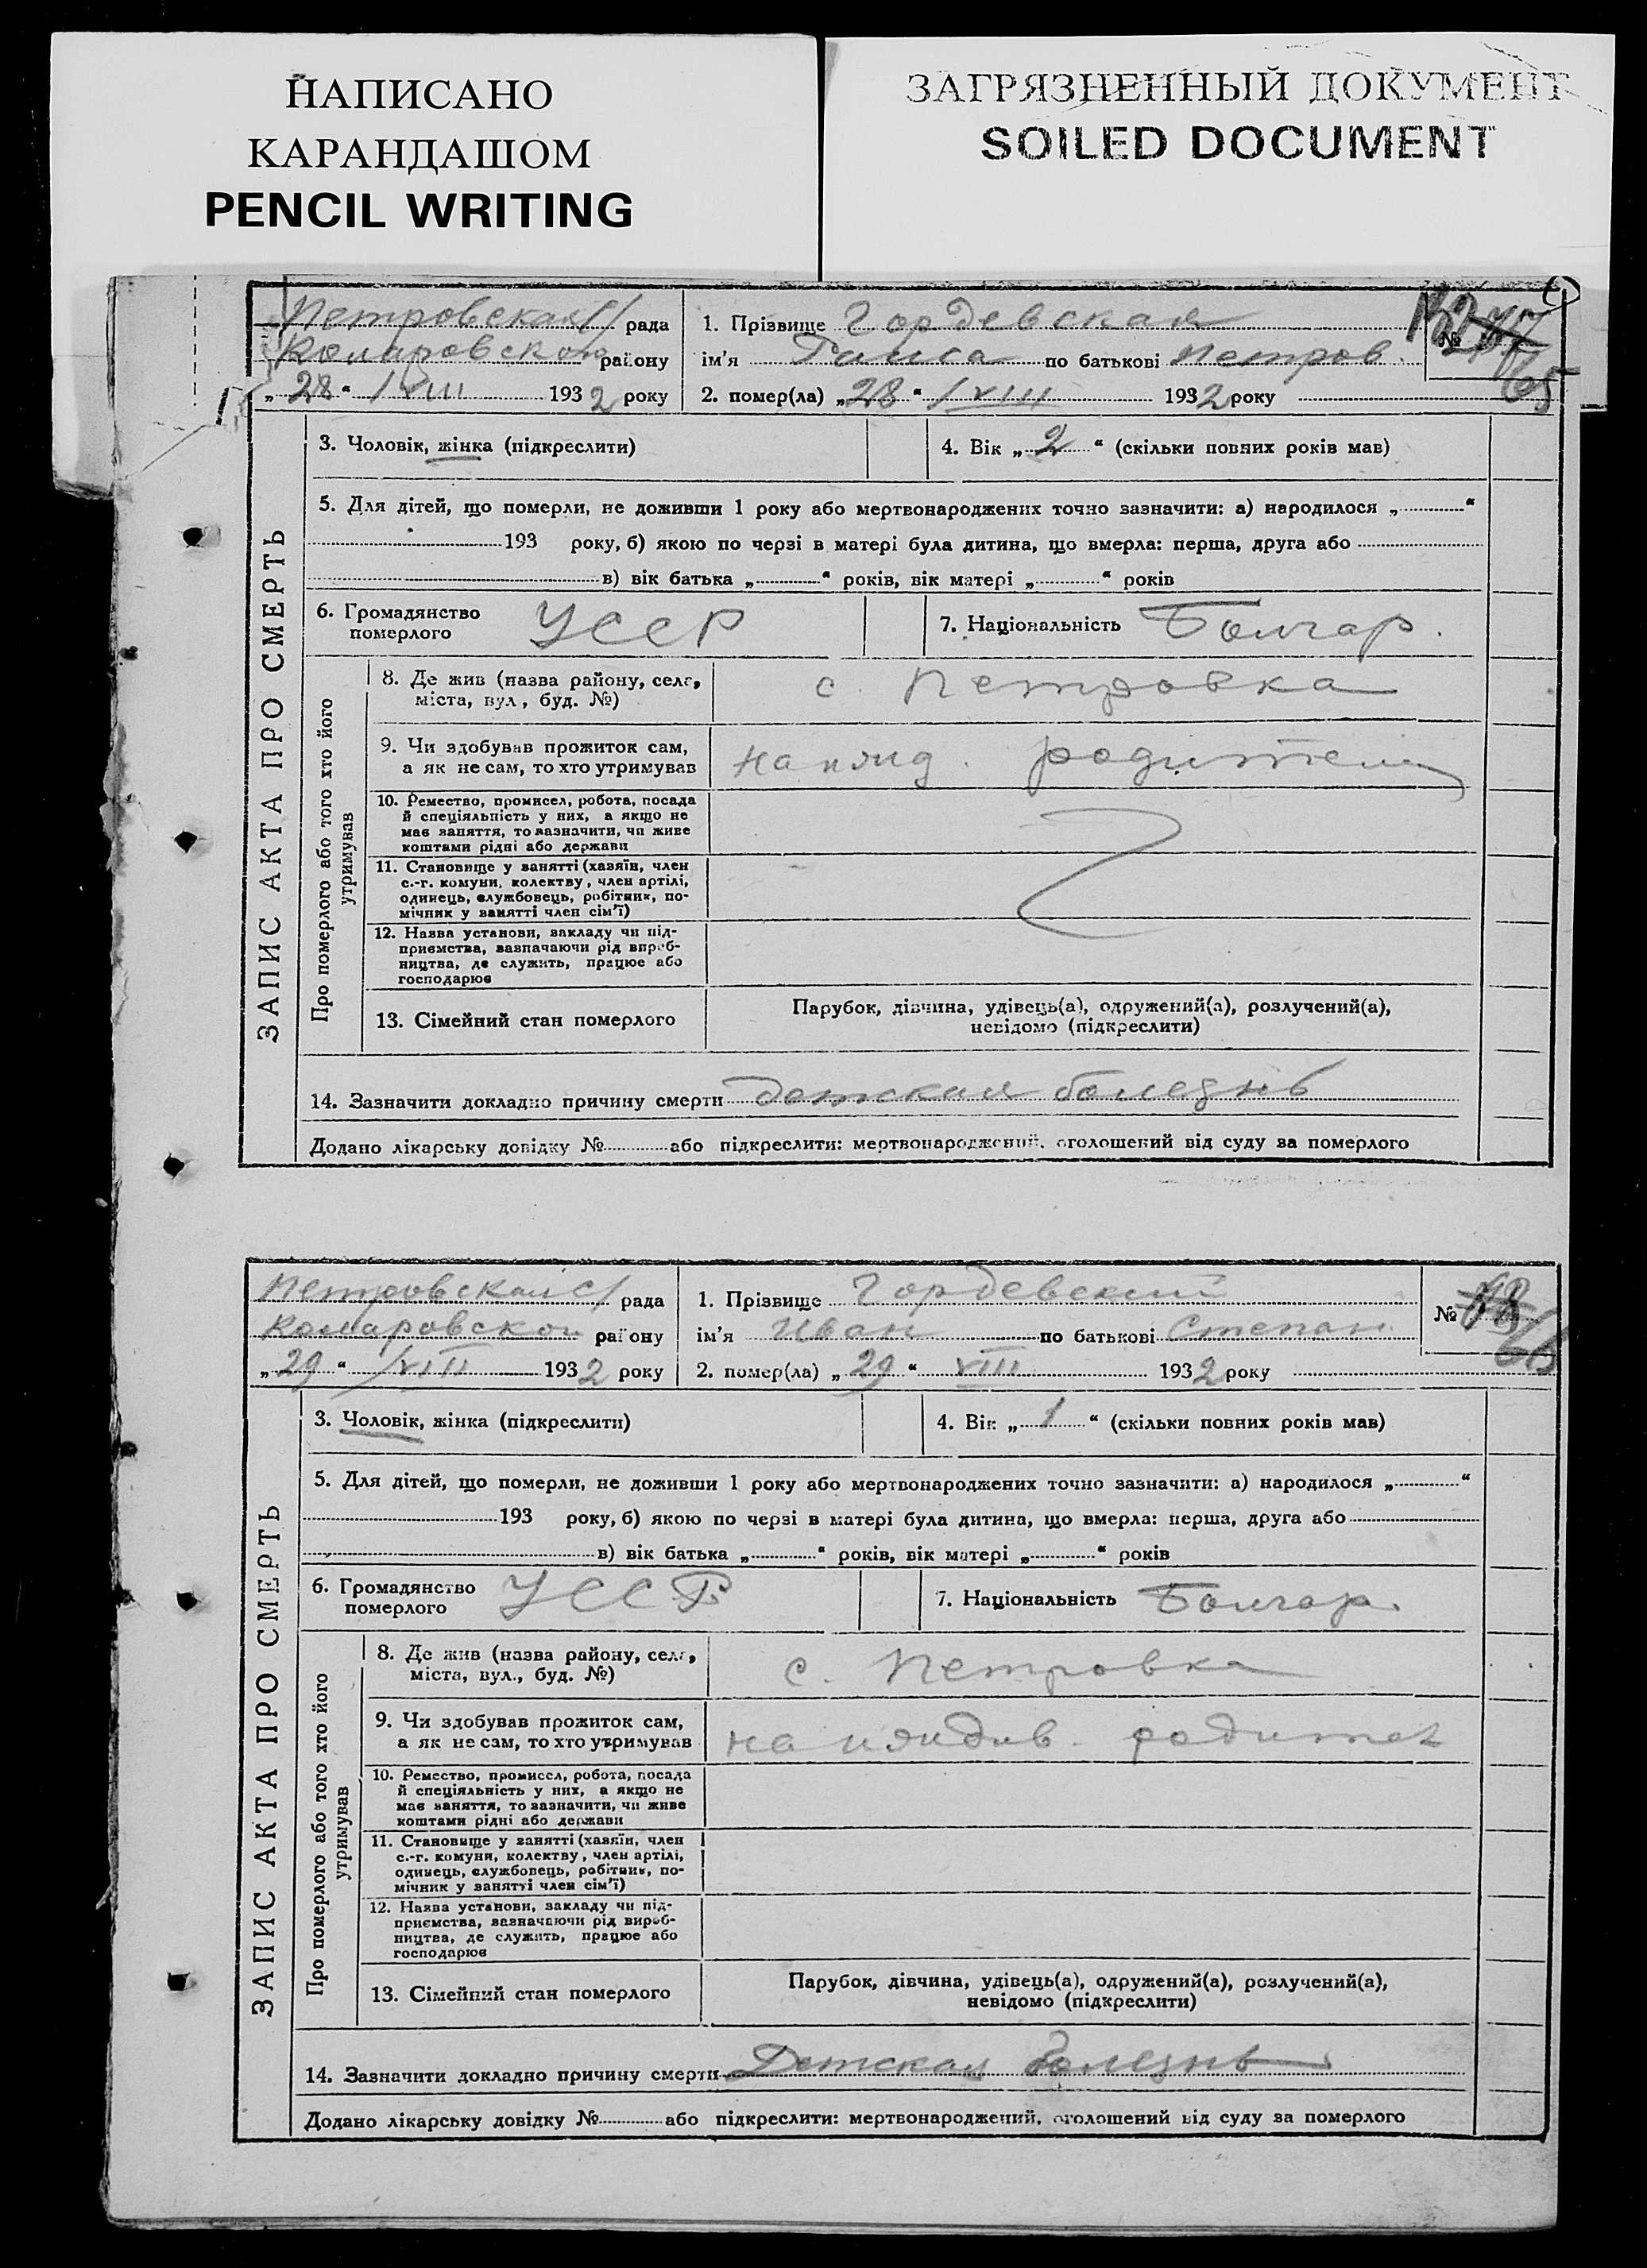 НАПИСАНО
КАРАНДАШОМ
PENCIL WRITING
ЗАГРЯЗНЕННЫЙ ДОКУМЕНТ
SOILED DOCUMENT
ЗАПИС АКТА ПРО СМЕРТЬ
Петровская с/ рада
Комаровского району
„28“ /VIII 1932 року
1. Прізвище Гордевская
ім'я Раиса по батькові Петров.
2. помер(ла) „28“ /VIII 1932 року
№ 65
3. Чоловік, жінка (підкреслити)
4. Вік „2“ (скільки повних років мав)
5. Для дітей, що померли, не доживши 1 року або мертвонароджених точно зазначити: а) народилося „ “
193 року, б) якою по черзі в матері була дитина, що вмерла: перша, друга або
в) вік батька „ “ років, вік матері „ “ років
6. Громадянство
померлого УССР
7. Національність Болгар.
Про померлого або того хто його
утримував
8. Де жив (назва району, села,
міста, вул., буд. №) с. Петровка
9. Чи здобував прожиток сам,
а як не сам, то хто утримував на ижд. родители
10. Ремество, промисел, робота, посада
й спеціяльність у них, а якщо не
має заняття, то зазначити, чи живе
коштами рідні або держави
11. Становище у занятті (хазяїн, член
с.-г. комуни, колективу, член артілі,
одинець, службовець, робітник, по-
мічник у занятті член сім'ї)
12. Назва установи, закладу чи під-
приємства, зазначаючи рід вироб-
ництва, де служить, працює або
господарює
13. Сімейний стан померлого
Парубок, дівчина, удівець(а), одружений(а), розлучений(а),
невідомо (підкреслити)
14. Зазначити докладно причину смерти детская болезнь
Додано лікарську довідку № або підкреслити: мертвонароджений, оголошений від суду за померлого
ЗАПИС АКТА ПРО СМЕРТЬ
Петровской с/ рада
Комаровской району
„29“ /VIII 1932 року
1. Прізвище Гордевский
ім'я Иван по батькові Степан
2. помер(ла) „29“ VIII 1932 року
№ 78 66
3. Чоловік, жінка (підкреслити)
4. Вік „1“ (скільки повних років мав)
5. Для дітей, що померли, не доживши 1 року або мертвонароджених точно зазначити: а) народилося „ “
193 року, б) якою по черзі в матері була дитина, що вмерла: перша, друга або
в) вік батька „ “ років, вік матері „ “ років
6. Громадянство
померлого УССР
7. Національність Болгар.
Про померлого або того хто його
утримував
8. Де жив (назва району, села,
міста, вул., буд. №) с. Петровка
9. Чи здобував прожиток сам,
а як не сам, то хто утримував на родител
10. Ремество, промисел, робота, посада
й спеціяльність у них, а якщо не
має заняття, то зазначити, чи живе
коштами рідні або держави
11. Становище у занятті (хазяїн, член
с.-г. комуни, колектву, член артілі,
одинець, службовець, робітник, по-
мічник у занятті член сім'ї)
12. Назва установи, закладу чи під-
приємства, зазначаючи рід вироб-
ництва, де служить, працює або
господарює
13. Сімейний стан померлого
Парубок, дівчина, удівець(а), одружений(а), розлучений(а),
невідомо (підкреслити)
14. Зазначити докладно причину смерти Детская болезнь
Додано лікарську довідку № або підкреслити: мертвонароджений, оголошений від суду за померлого